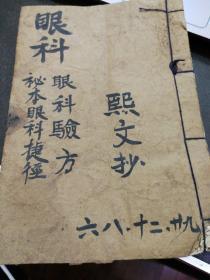 眼科
眼科驗方
秘本眼科捷徑
熙文抄
六八·十二·廿九